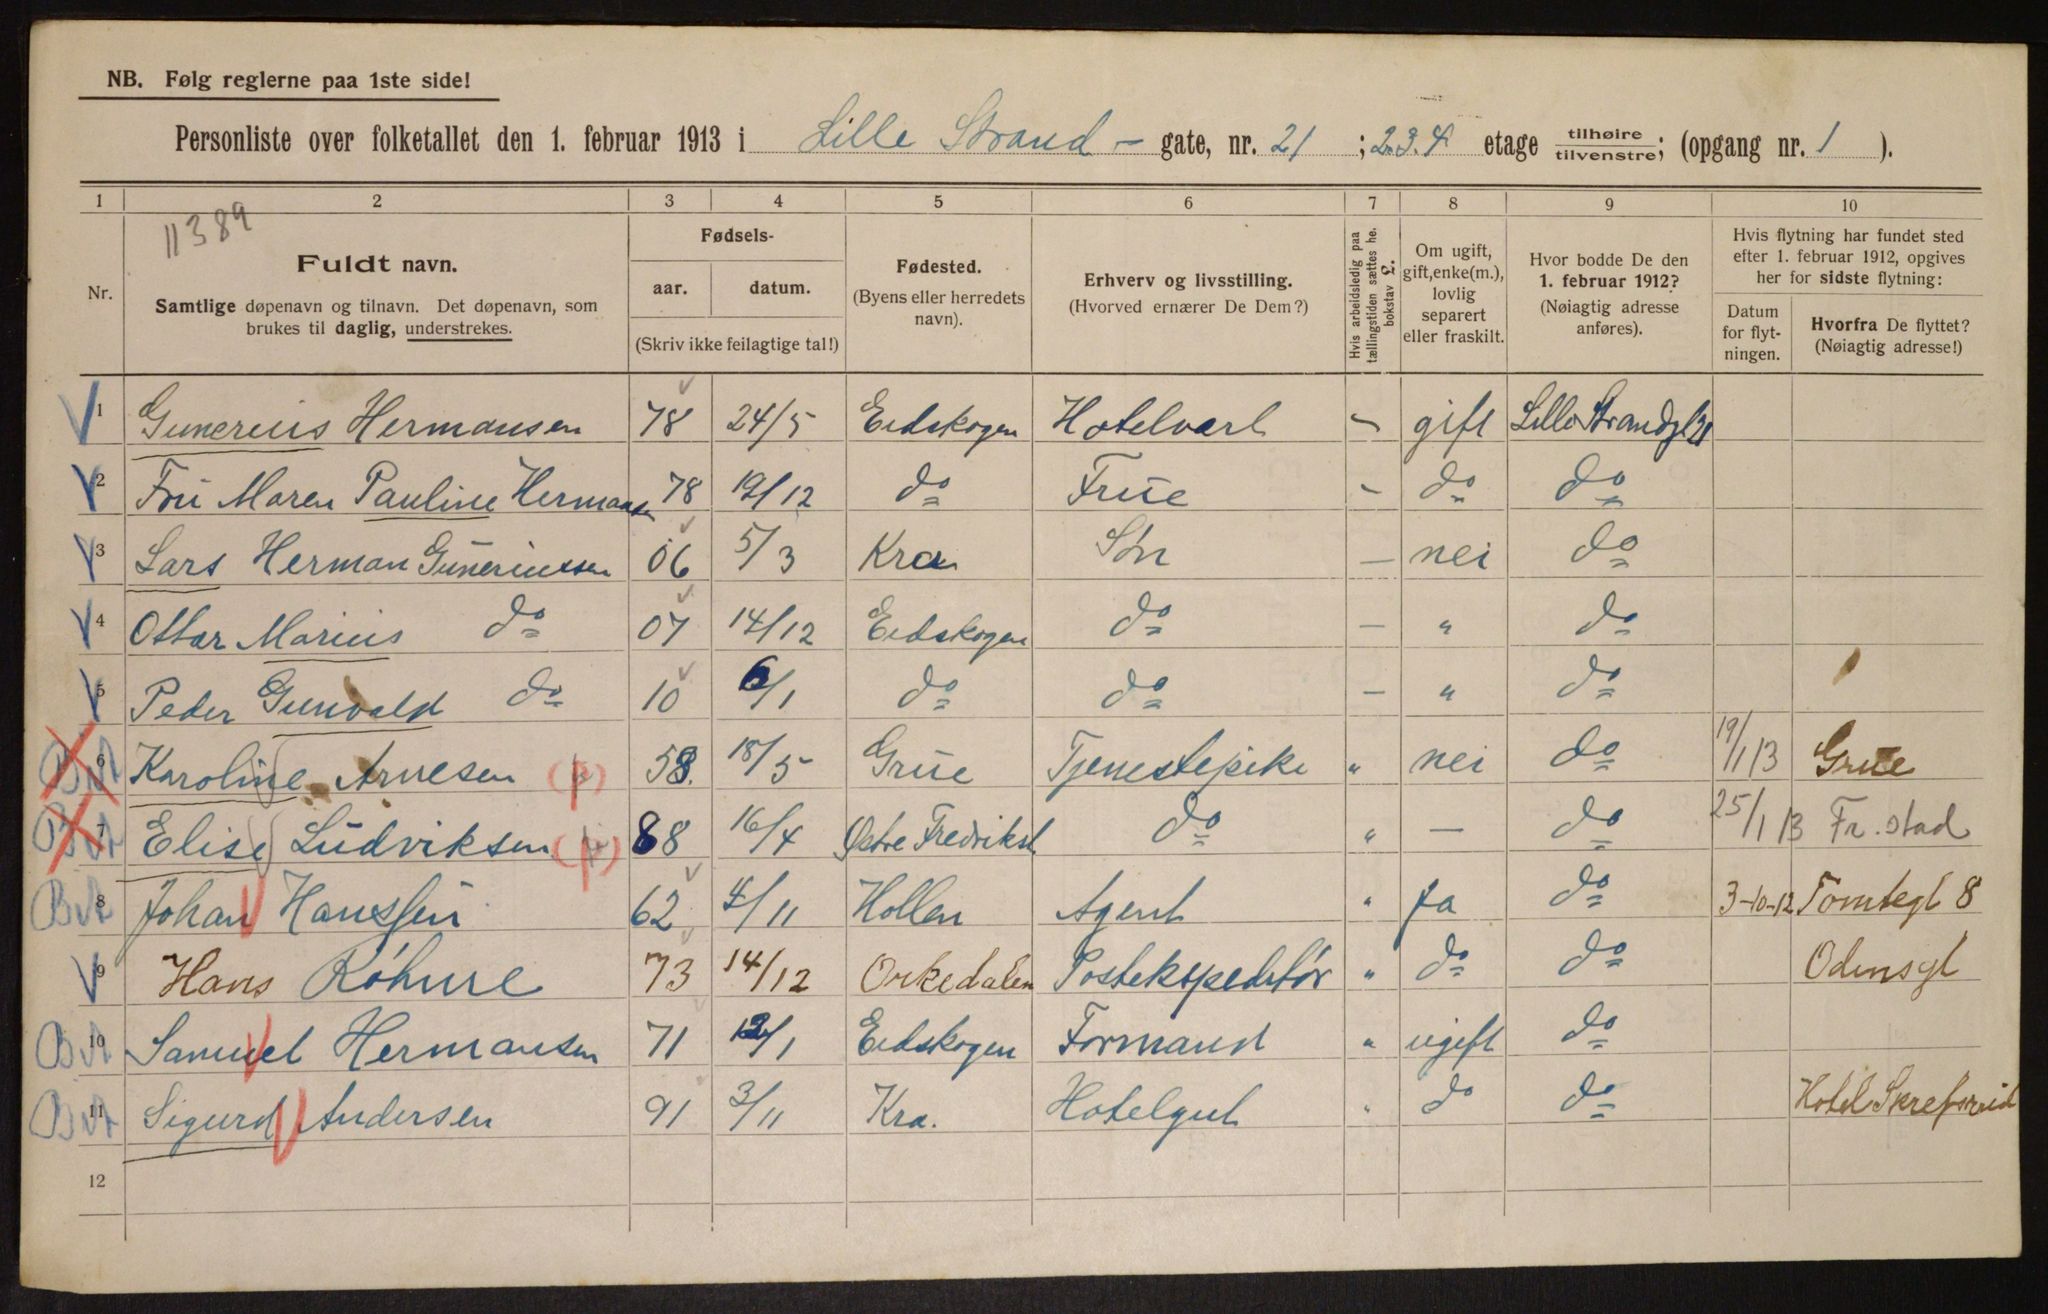 NB. Følg reglerne paa 1ste side!
Personliste over folketallet den 1. februar 1913 i Lille Strand - gate, nr. 21 ; 2.3.4 etage tilhøire tilvenstre; (opgang nr. 1 ).
1 2 3 4 5 6 7 8 9 10
11389
Nr.
Fuldt navn.
Samtlige døpenavn og tilnavn. Det døpenavn, som
brukes til daglig, understrekes.
Fødsels-
aar. datum.
(Skriv ikke feilagtige tal!)
Fødested.
(Byens eller herredets
navn).
Erhverv og livsstilling.
(Hvorved ernærer De Dem?)
Hvis arbeidsledig paa
tællingstiden sættes he.
bokstav L.
Om ugift,
gift, enke(m.),
lovlig
separert
eller fraskilt.
Hvor bodde De den
1. februar 1912?
(Nøiagtig adresse
anføres).
Hvis flytning har fundet sted
efter 1. februar 1912, opgives
her for sidste flytning:
Datum
for flyt-
ningen.
Hvorfra De flyttet?
(Nøiagtig adresse!)
1 Gunerius Hermansen 78 24/5 Eidskogen Hotelvært - gift Lille Strandgt 21
2 Fru Maren Pauline Hermansen 78 19/12 do Frue - do do
3 Lars Herman Guneriussen 06 5/3 Kra Søn - nei do
4 Ottar Marius do 07 14/12 Eidskogen do - " do
5 Peder Gunvald do 10 6/1 do do - " do
6 Karoline Arnesen (p) 58. 18/5 Grue Tjenestepike " nei do 19/1 13 Grue
7 Elise Ludviksen (p) 88 16/4 Østre Fredrikst do " - do 25/1 13 Fr.stad
8 Johan Hanssen 62 4/11 Hollen Agent " ja do 3-10-12 Tomtegt 8
9 Hans Röhme 73 14/12 Orkedalen Postekspeditør " do do Odinsgt
10 Samuel Hermansen 71 /1 Eidskogen Formand " ugift do
11 Sigurd Andersen 91 3/11 Kra. Hotelgut " do do Hotel
12